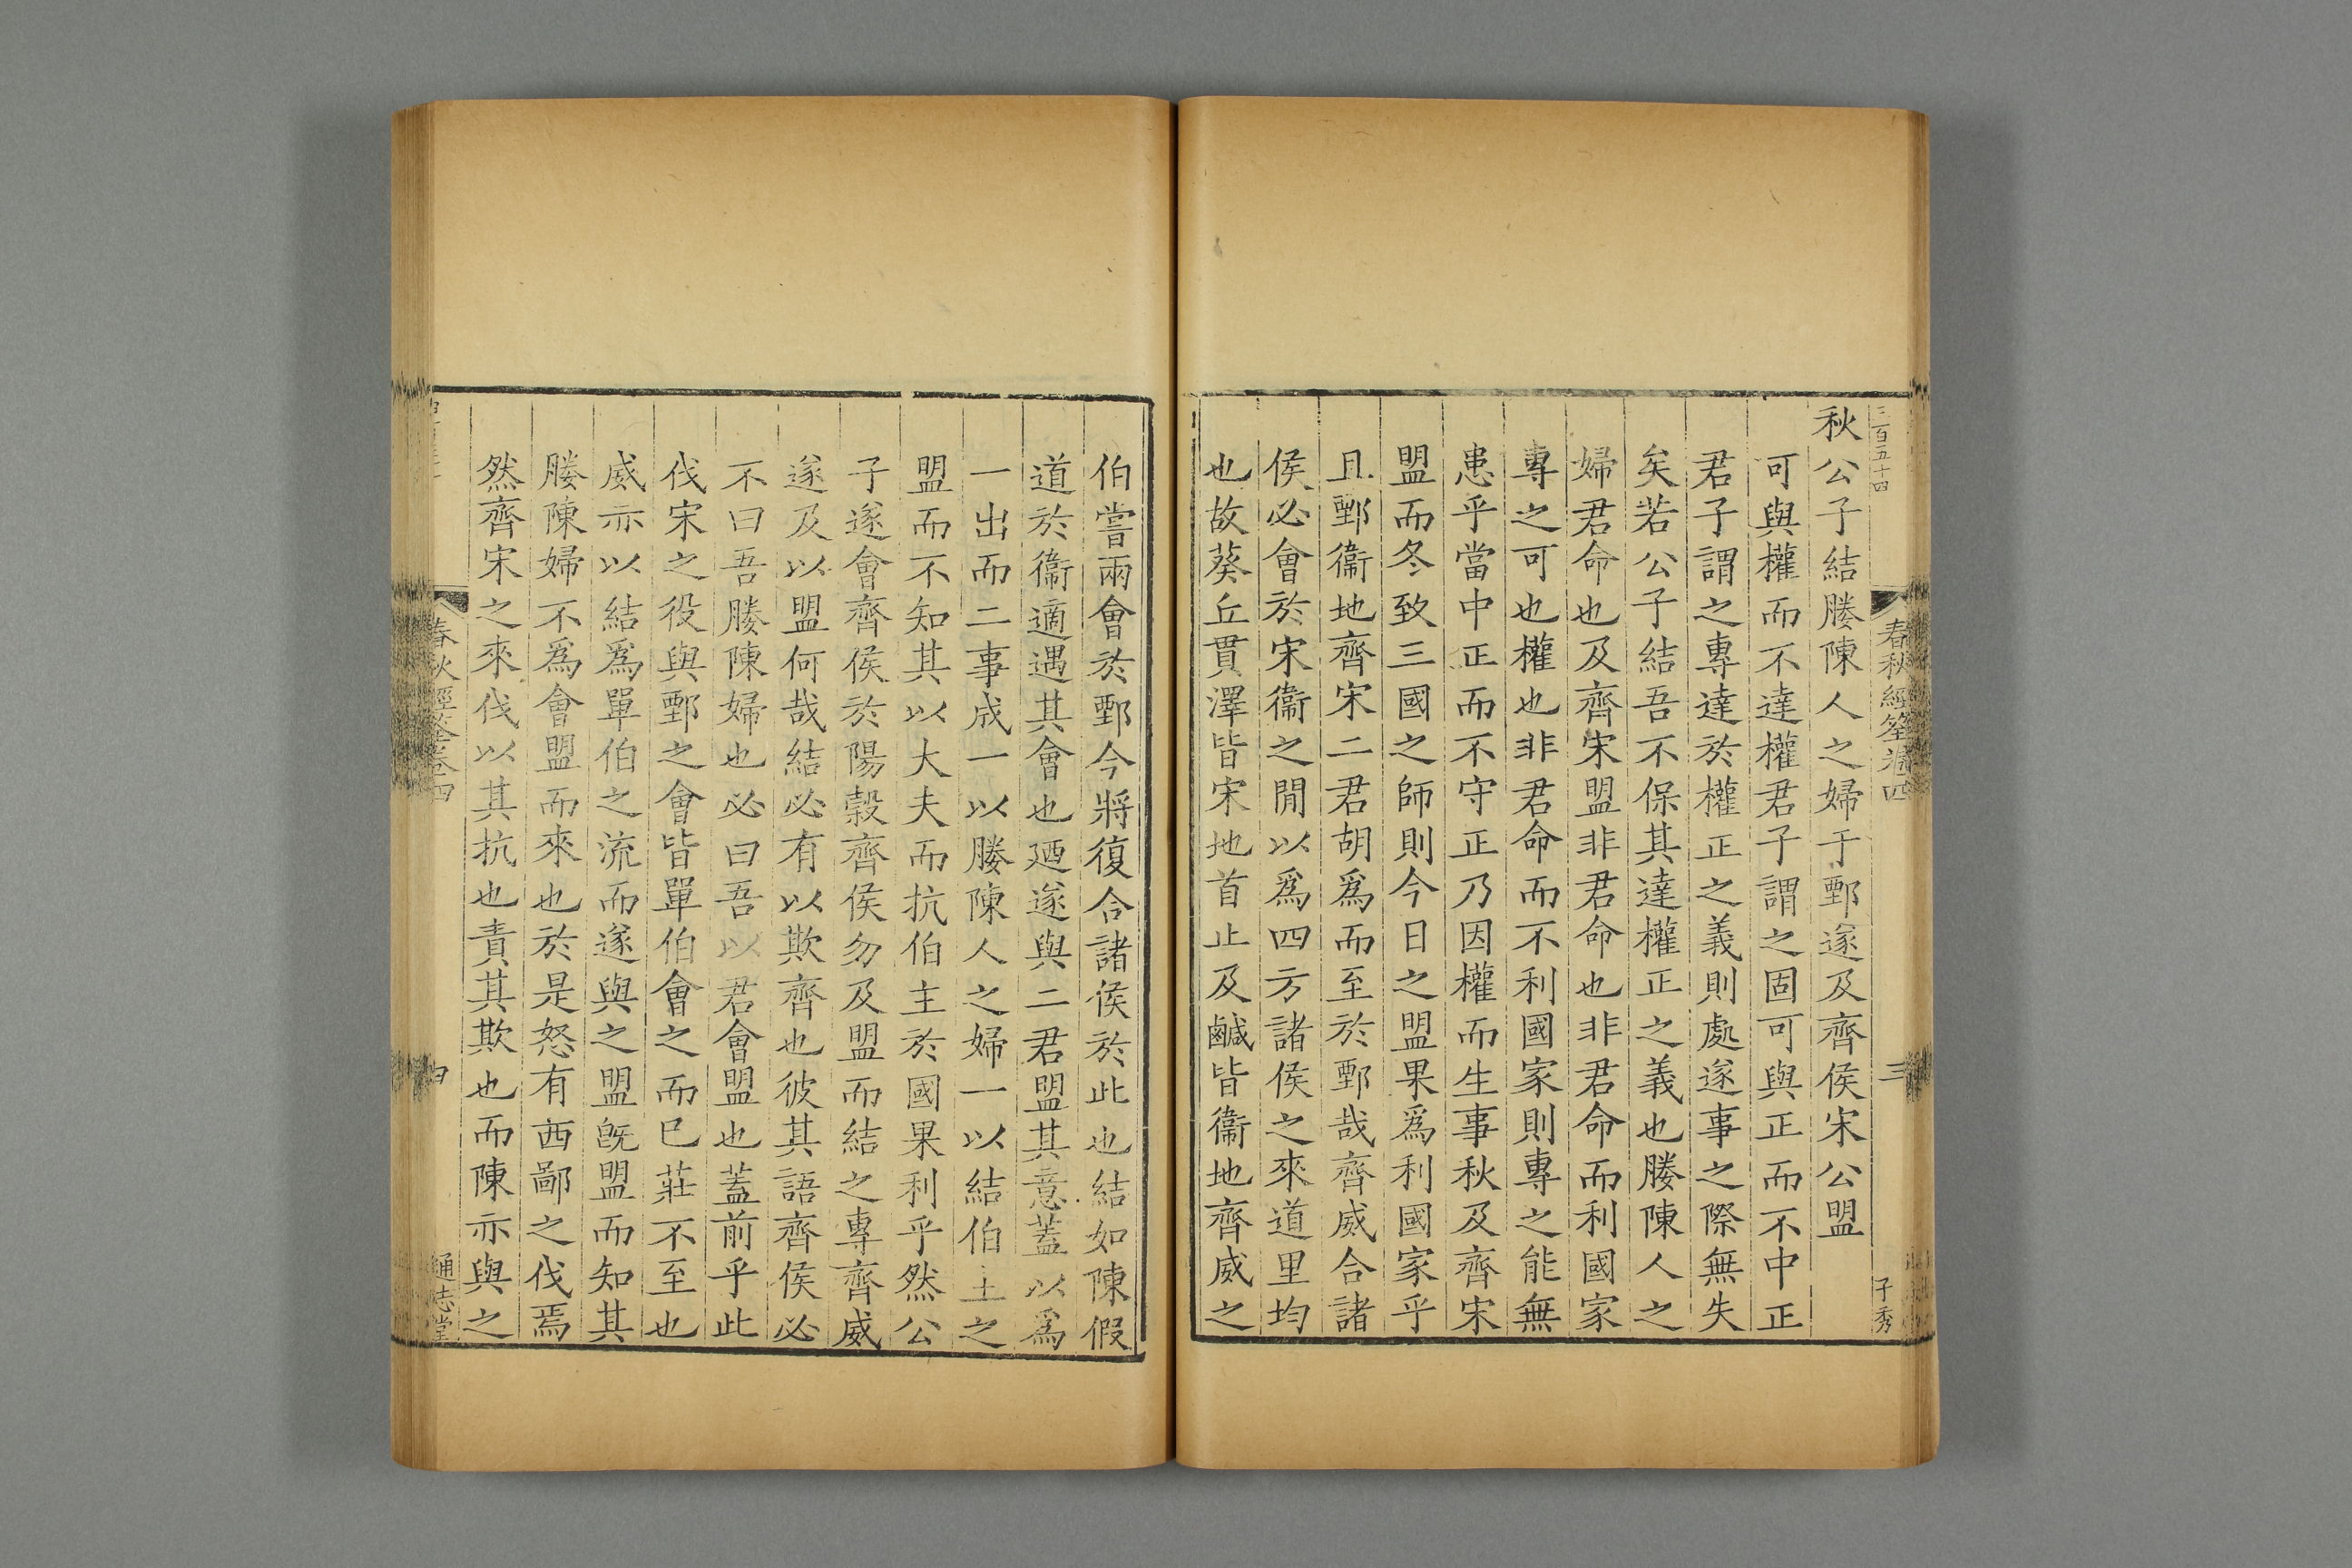 三百五十四
春秋經筌卷四
三
子秀
秋公子結媵陳人之婦于鄄遂及齊侯宋公盟
可與權而不達權君子謂之固可與正而不中正
君子謂之專達於權正之義則處遂事之際無失
矣若公子結吾不保其達權正之義也媵陳人之
婦君命也及齊宋盟非君命也非君命而利國家
專之可也權也非君命而不利國家則專之能無
患乎當中正而不守正乃因權而生事秋及齊宋
盟而冬致三國之師則今日之盟果爲利國家乎
且鄄衞地齊宋二君胡爲而至於鄄哉齊威合諸
侯必會於宋衞之閒以爲四方諸侯之來道里均
也故葵丘貫澤皆宋地首止及鹹皆衞地齊威之
伯嘗兩會於鄄今將復合諸侯於此也結如陳假
道於衞適遇其會也廼遂與二君盟其意蓋以爲
一出而二事成一以媵陳人之婦一以結伯主之
盟而不知其以大夫而抗伯主於國果利乎然公
子遂會齊侯於陽榖齊侯勿及盟而結之專齊威
遂及以盟何哉結必有以欺齊也彼其語齊侯必
不曰吾媵陳婦也必曰吾以君會盟也蓋前乎此
伐宋之役與鄄之會皆單伯會之而已莊不至也
威亦以結爲單伯之流而遂與之盟旣盟而知其
媵陳婦不爲會盟而來也於是怒有西鄙之伐焉
然齊宋之來伐以其抗也責其欺也而陳亦與之
春秋經筌卷四
通志堂